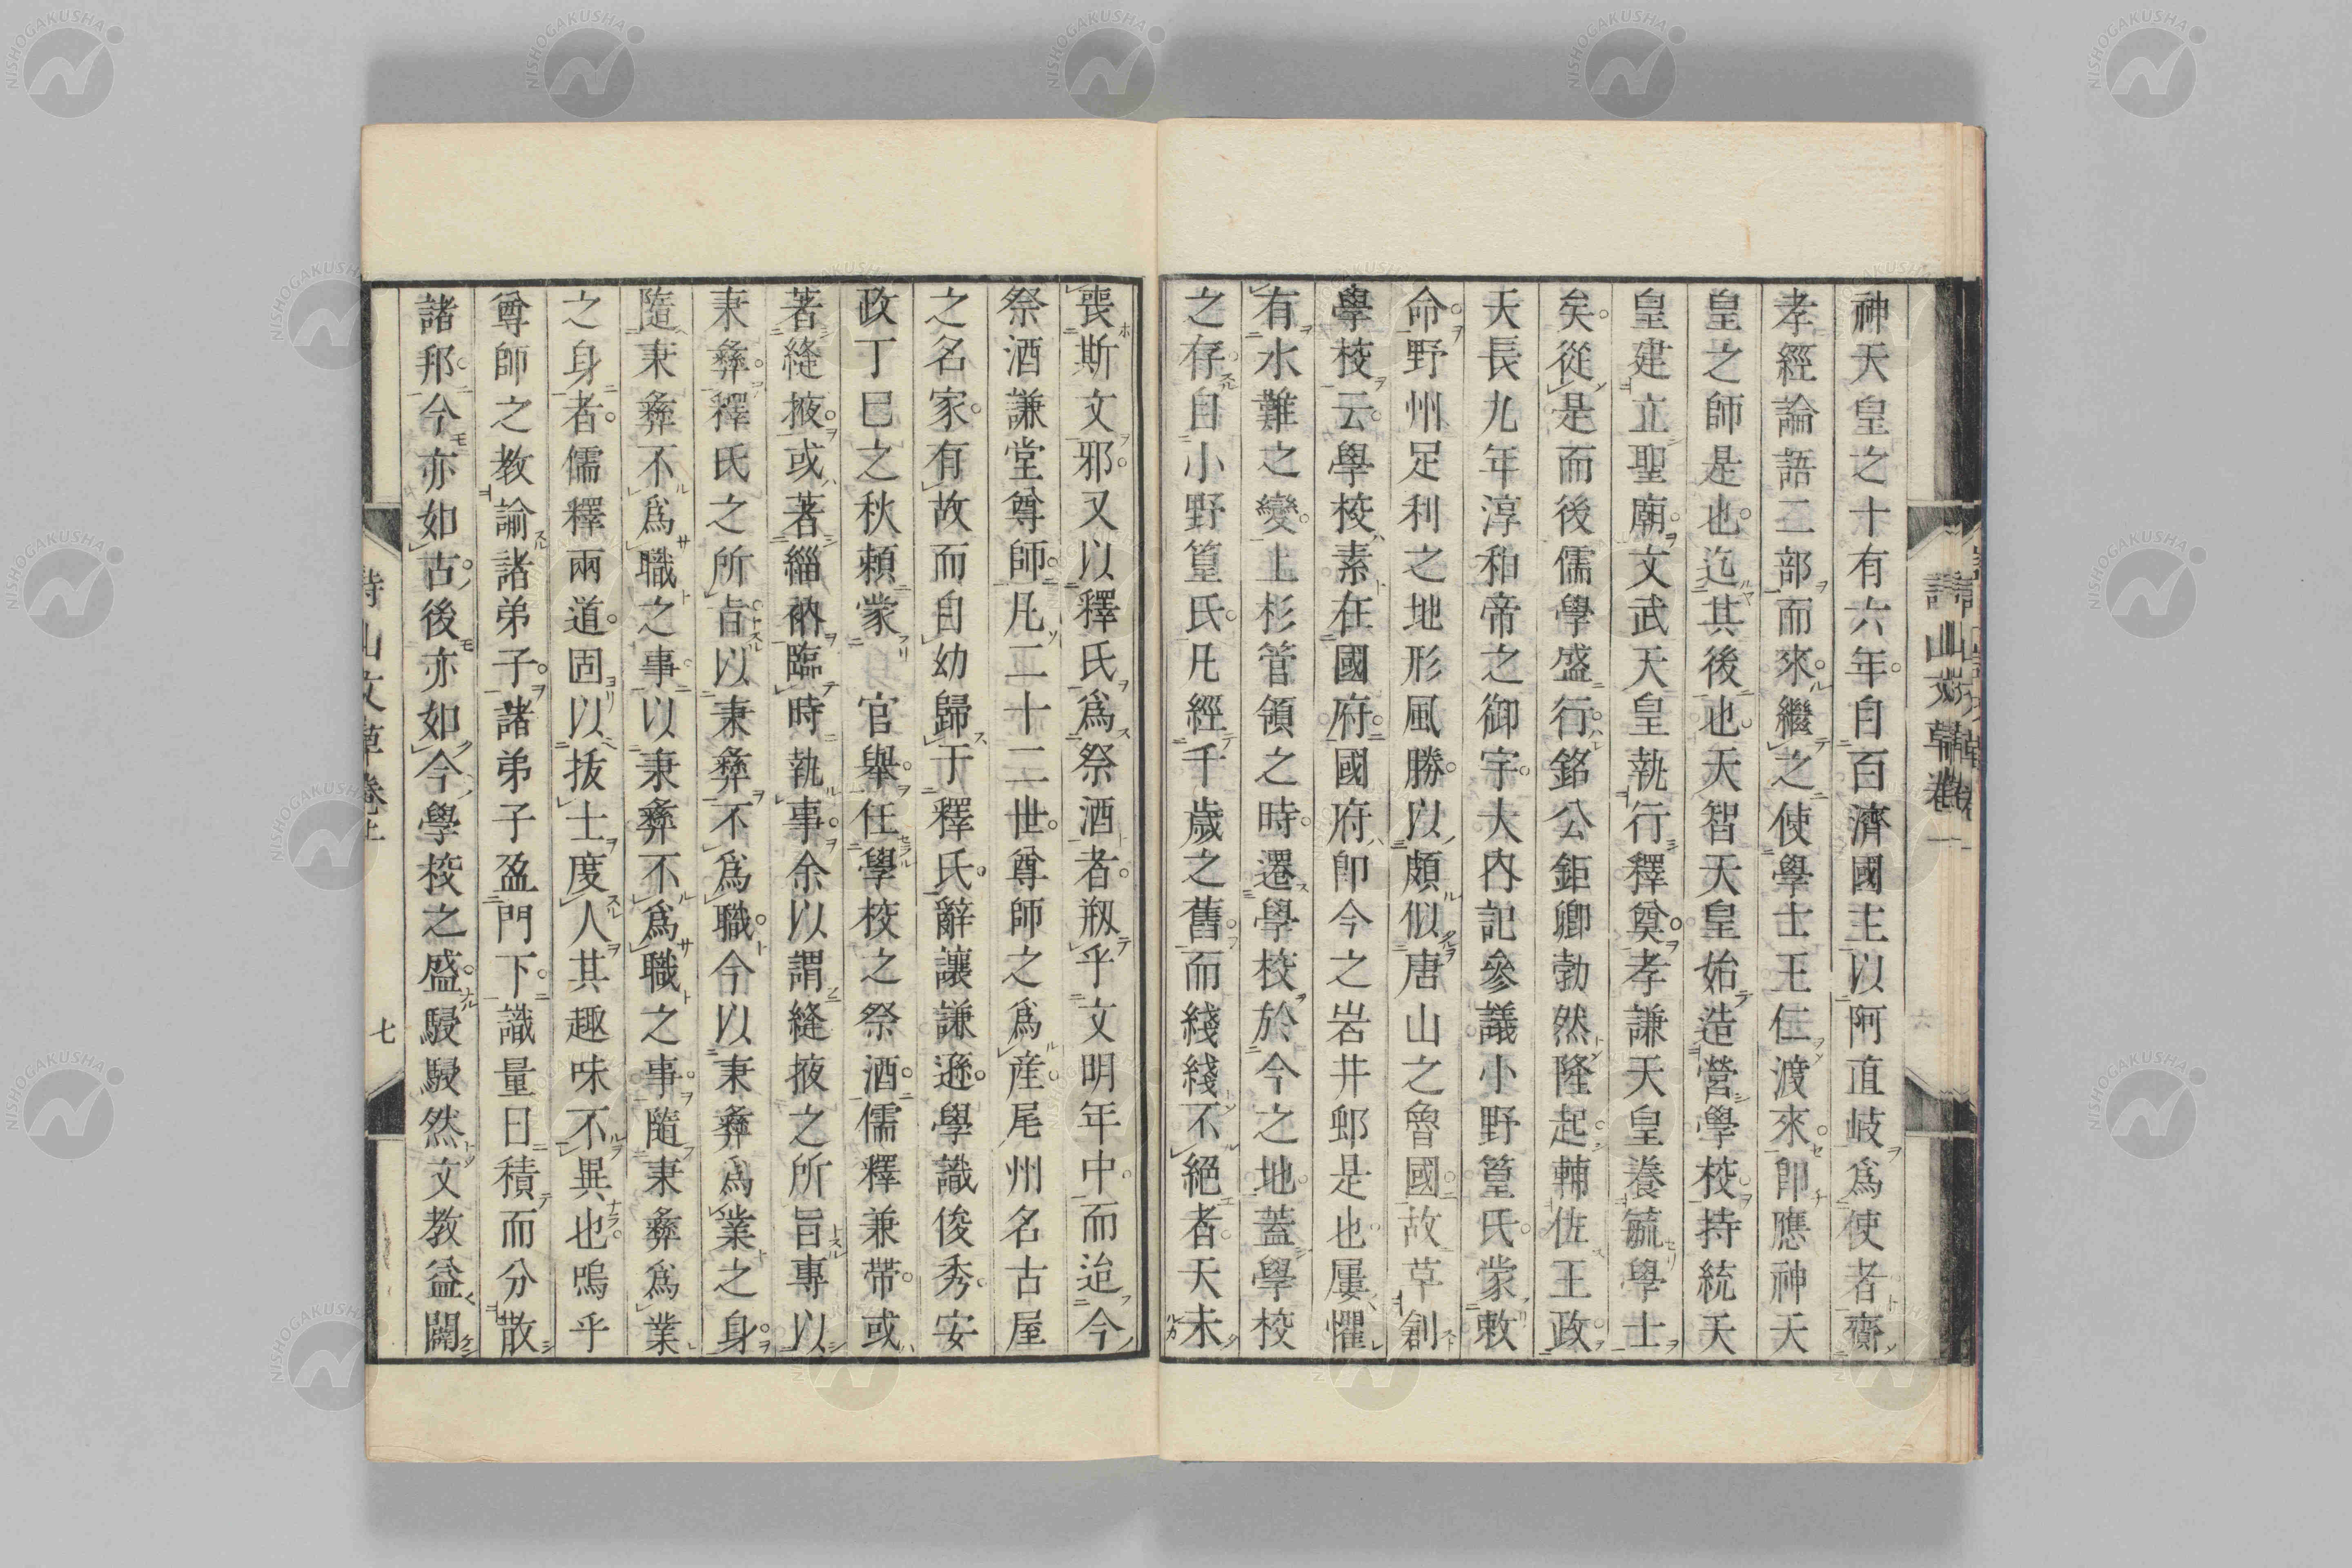 神天皇之十有六年。自百濟國主以阿直岐爲使者齎
孝經論語二部而來。繼之使學士王仁渡來。卽應神天
皇之師是也。迄其後也。天智天皇始造營學校。持統天
皇建立聖廟。文武天皇執行釋奠。孝謙天皇養毓學士
矣。從是而後儒學盛行。銘公鉅卿勃然隆起。輔佐王政。
天長九年淳和帝之御宇。大內記參議小野篁氏。蒙敕
命。野州足利之地形風勝。以頗似唐山之魯國。故草創
學校云。學校素在國府。國府卽今之岩井邨是也。屢懼
有水難之變。上杉管領之時。遷學校於今之地。蓋學校
之存自小野篁氏。凡經千歲之舊。而綫綫不絕者。天未
喪斯文邪。又以釋氏爲祭酒者。剏乎文明年中。而迨今
祭酒謙堂尊師。凡二十二世。尊師之爲產。尾州名古屋
之名家。有故而自幼歸于釋氏。辭讓謙遜。學識俊秀。安
政丁巳之秋賴蒙 官舉。任學校之祭酒。儒釋兼帶。或
著縫掖。或著緇衲。臨時執事。余以謂縫掖之所旨專以
秉彝。釋氏之所旨以秉彝不爲職。今以秉彝爲業之身。
隨秉彝不爲職之事。以秉彝不爲職之事。隨秉彝爲業
之身者。儒釋兩道。固以拔士度人其趣味不異也。嗚乎
尊師之教諭諸弟子。諸弟子盈門下。識量日積而分散
諸邦。今亦如古。後亦如今。學校之盛。駸駸然文教益闢
詩山文草卷上
七